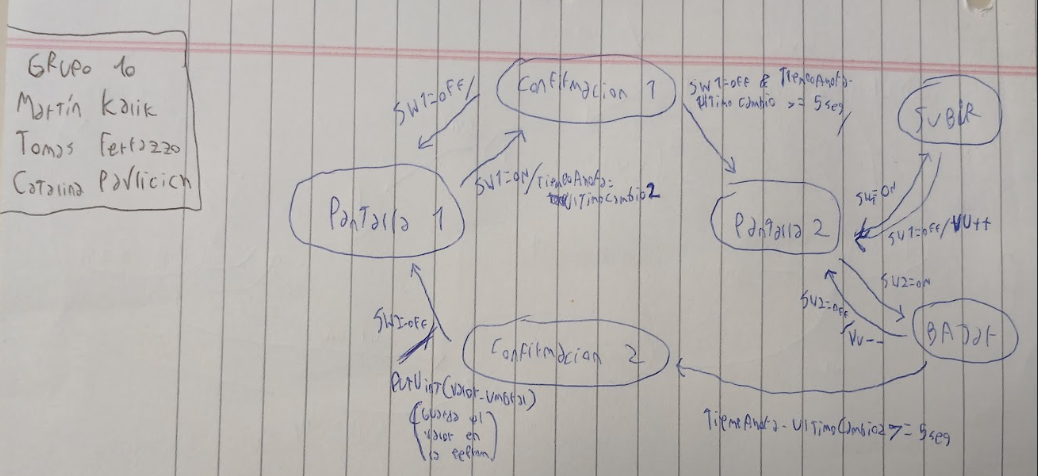 GRUPO 10
Martín Kalik
Tomas Ferrazzo
Catalina Pavlicich
Confirmacion 1
SW1=OFF/
SW1=OFF & TiempoAhora-
UltimoCambio >= 5seg
/
SUBIR
SW1=ON/TiempoAhora=
UltimoCambio2
Pantalla 1
Pantalla 2
SW1=ON
SW1=OFF/VU++
SW2=ON
SW2=OFF
/VU--
BAJAR
SW2=OFF
Confirmacion 2
PutUint(valor-Umbral)
(Guarda el
valor en
la eeprom)
TiempoAhora-UltimoCambio2>=5seg